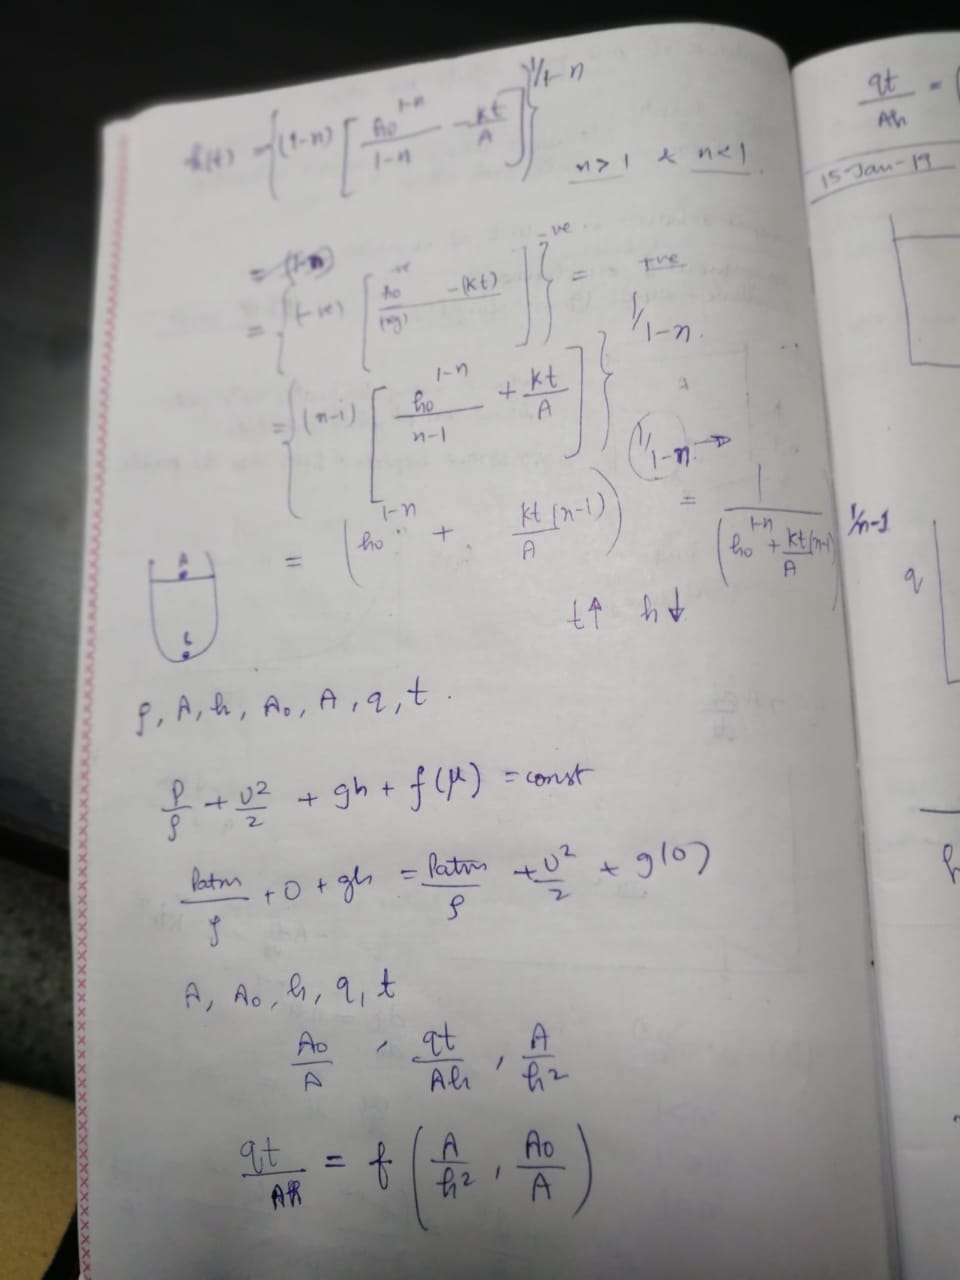 h(t) = {(1-n) [h₀^(1-n)/(1-n) - kt/A]}^(1/1-n)
n>1 & n<1.
= (1-n)
= {(-ve) [h₀^(-ve)/(-ve) -(kt)]}^(-ve) = +ve
= {(n-1) [h₀^(1-n)/(n-1) + kt/A]}^(1/1-n)
= (h₀^(1-n) + kt(n-1)/A)^(1/1-n) → = 1/(h₀^(1-n) + kt(n-1)/A)^(1/n-1)
t↑ h↓
ρ, A, h, A₀, A, q, t.
P/ρ + v²/2 + gh + f(μ) = const
Patm/ρ + 0 + gh = Patm/ρ + v²/2 + g(0)
A, A₀, h, q, t
A₀/A, qt/Ah, A/h²
qt/Ah = f(A/h², A₀/A)
qt/Ah = (
15-Jan-19
q
h